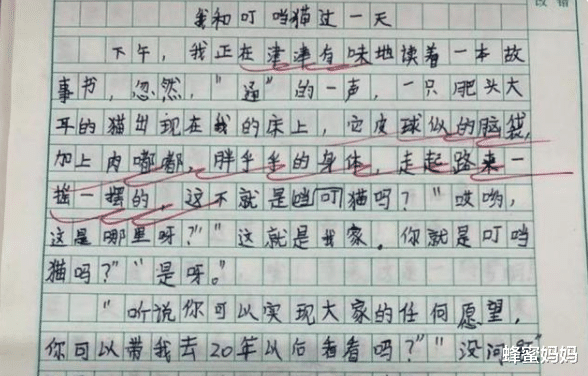 我和叮当猫过一天
下午，我正在津津有味地读着一本故
事书，忽然，“通”的一声，一只肥头大
耳的猫出现在我的床上，它皮球似的脑袋，
加上肉嘟嘟、胖乎乎的身体，走起路来一
摇一摆的，这不就是当叮猫吗？”“哎哟，
这是哪里呀？”“这就是我家。你就是叮当
猫吗？”“是呀。”
“听说你可以实现大家的任何愿望，
你可以带我去20年以后看看吗？”“没问
蜂蜜妈妈